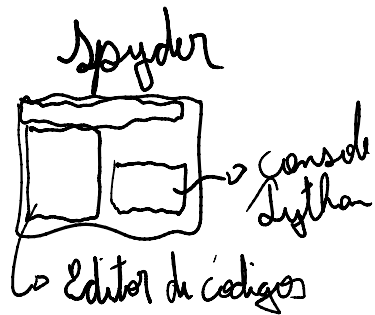 Spyder
console
Python
Editor de códigos